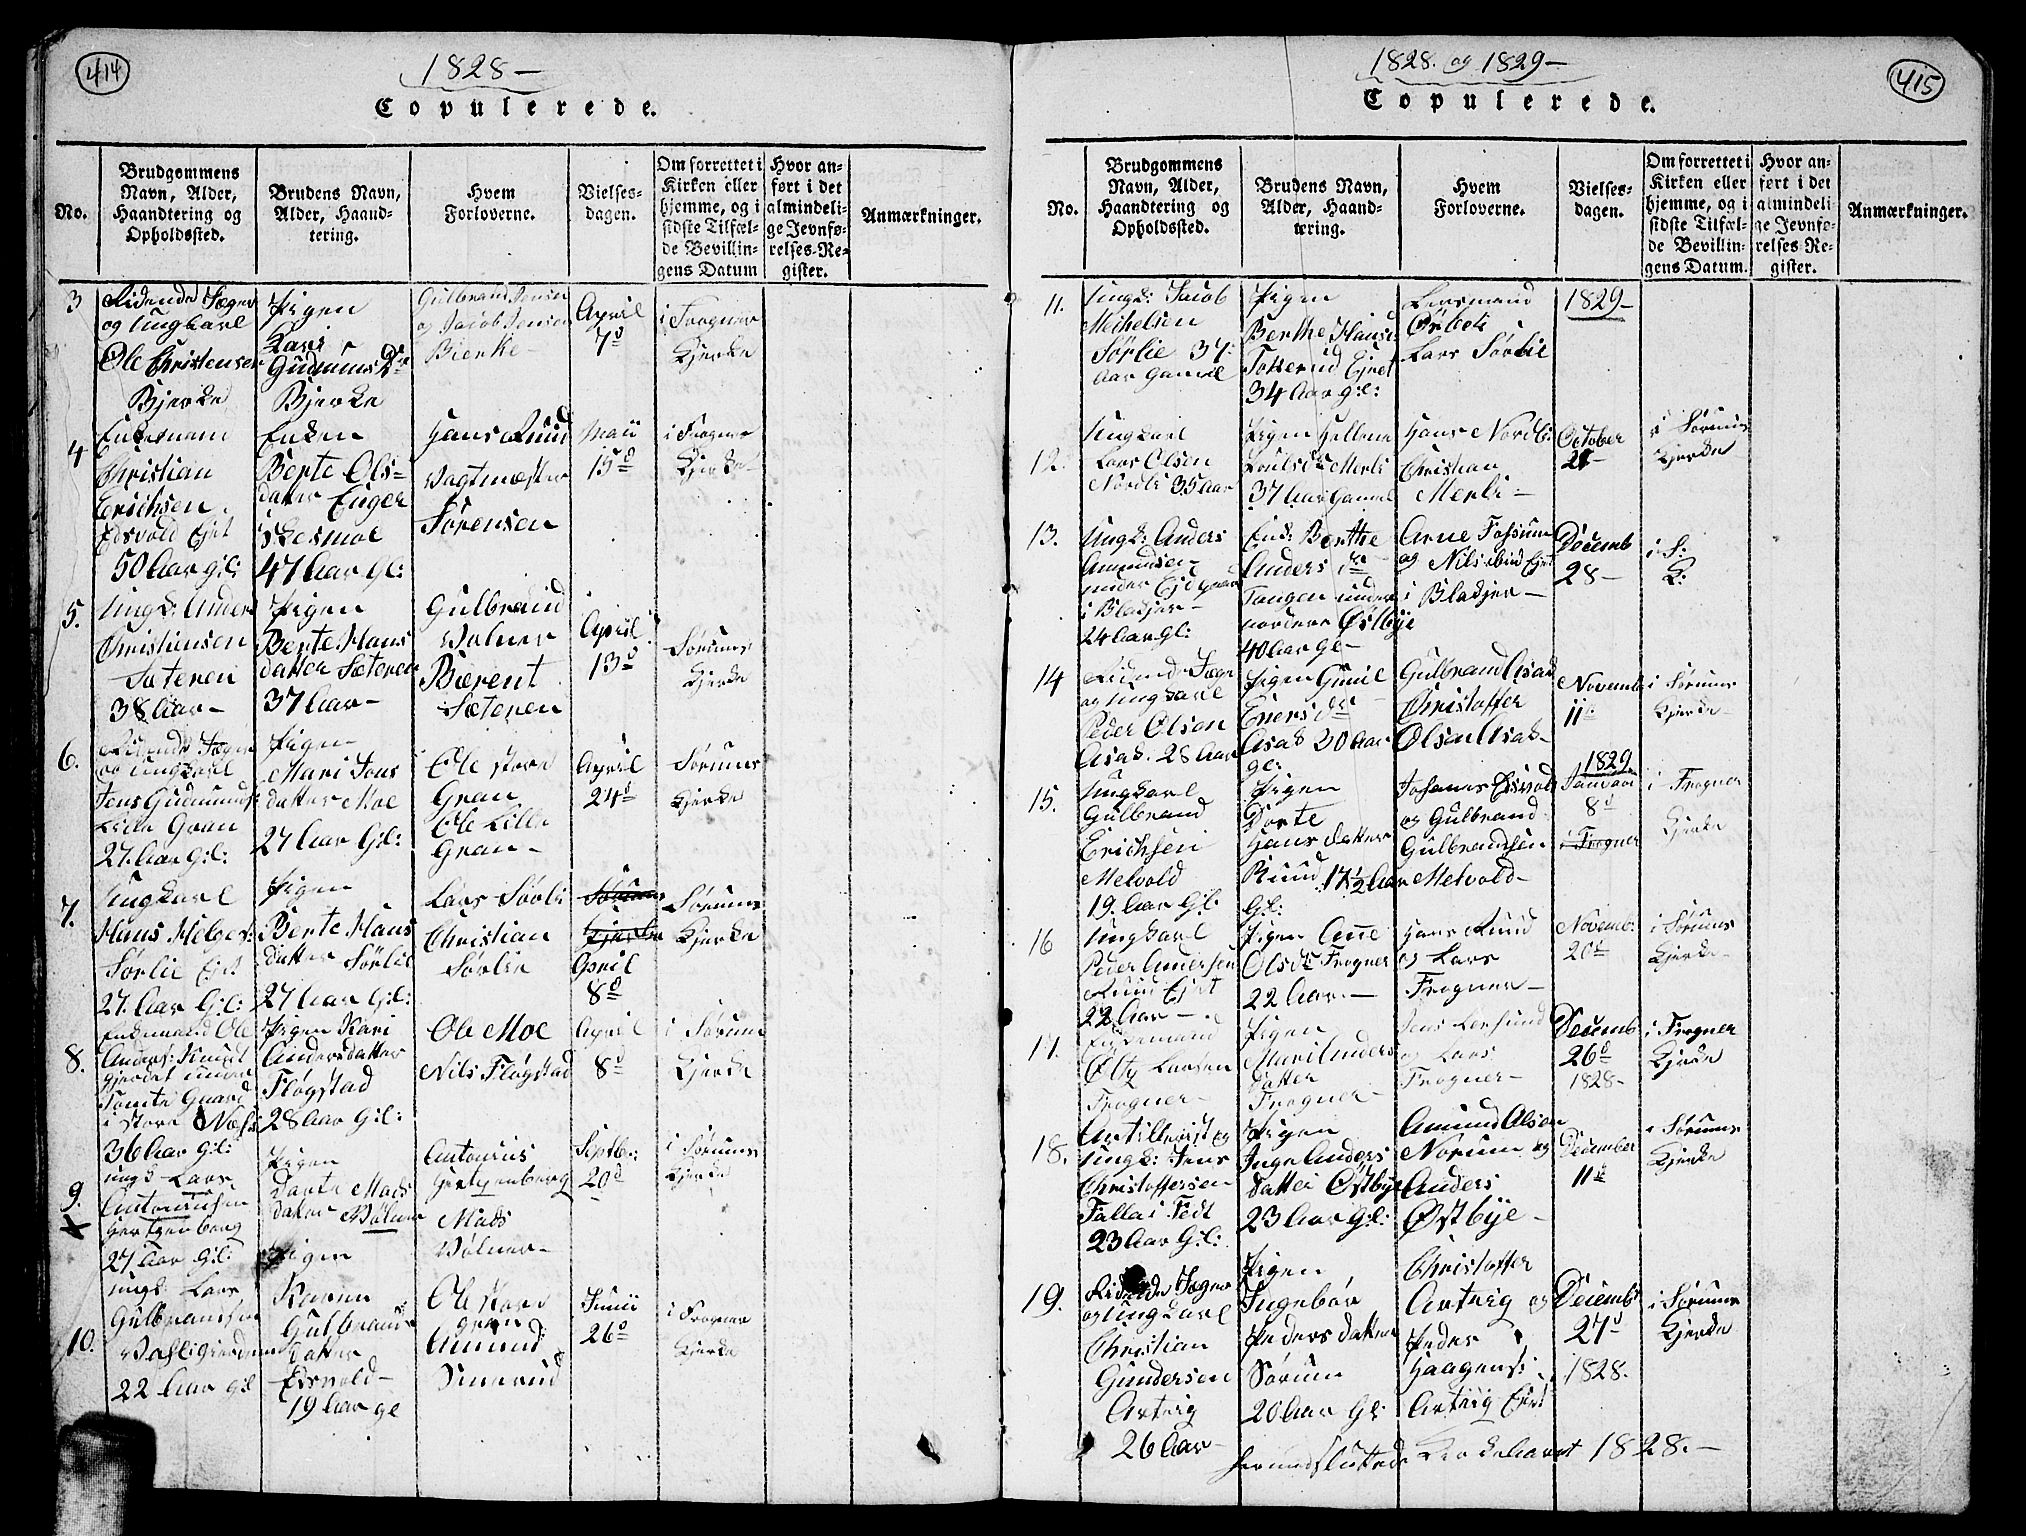 414
1828 —
Copulerede.
No.
Brudgommens Navn, Alder, Haandtering og Opholdssted.
Brudens Navn, Alder, Haandtering.
Hvem Forloverne.
Vielses-dagen.
Om forrettet i Kirken eller hjemme, og i sidste Tilfælde Bevillingens Datum
Hvor anført i det almindelige Jevnførelses-Register.
Anmærkninger.
3
Ridende Jæger
og Ungkarl
Ole Christensen
Bjerke
Pigen
Kari
Gudmunds Dr
Bjerke
Gulbrand Jensen
og Jacob Jensen
Bierke
April
7d
i Frogner
Kjerke
4
Enkemand
Christian
Erichsen
Edsvold Ejet
50 Aar gl:
Enken
Berte Ols-
datter Enger
i Skesmoe
47 Aar Gl:
Hans Ruud
Vagtmester
Sørensen
Maii
15d
i Frogner
Kjerke
5.
Ungk: Anders
Christiensen
Sæteren
38 Aar —
Pigen
Berte Hans
datter Sæteren
37 Aar —
Gulbrand
Wolner
Bærent
Sæteren
April
13d
Sørums
Kjerke
6.
Ridende Jæger
og Ungkarl
Jens Gudmunds:
Lille Gran
27. Aar Gl:
Pigen
Mari Jons
datter Moe
27 Aar Gl:
Ole store
Gran
Ole Lille
Gran —
April
24d
Sørums
Kjerke
7.
Ungkarl
Hans Helges:
Sørlie Ejet
27. Aar Gl:
Pigen
Berte Hans
datter Sørlie
27 Aar Gl:
Lars Sørli
Christian
Sørlie
Sørums
Kjerke
April
8d
Sørums
Kjerke
8.
Enkemand Ole
Anders: Knust
gjerdet under
Tomte Gaard
i store Næs
36 Aar Gl:
Pigen Kari
Andersdatter
Fløgstad
28 Aar Gl:
Ole Moe
Nils Fløgstad
April
8d
i Sørum
Kjerke
9.
X
Ungk Lars
Antonisen
Hertzenberg
27 Aar Gl:
Pigen
Dorte Mads
datter Wolner
Antonius
Hertzenberg
Mads
Wolner —
Septbr:
20d
i Sørums
Kjerke
10.
Ungk Lars
Gulbrandsen
22 Aar gl
Pigen
Karen
Gulbrands
datter
Eisvold —
19 Aar gl
Ole store
gran
Amund
Sinerud
Junii
26d
i Frogner
Kjerke
415
1828. og 1829 —
Copulerede.
No.
Brudgommens Navn, Alder, Haandtering og Opholdssted.
Brudens Navn, Alder, Haandtering.
Hvem Forloverne.
Vielses-dagen.
Om forrettet i Kirken eller hjemme, og i sidste Tilfælde Bevillingens Datum.
Hvor anført i det almindelige Jevnførelses-Register.
Anmærkninger.
11.
Ungk: Jacob
Meihelsen
Sørlie 37
Aar Gammel
Pigen
Berthe Hansd:
Toxerud Ejet
34 Aar gl:
Lensmand
Ørbek
Lars Sørlie
1829 —
12.
Ungkarl
Lars Olsen
Nordli 35 Aar
Pigen Hellene
Poulsdr Merli
37 Aar Gammel
Hans Nordli
Christian
Merli —
October
21 —
i Sørums
Kjerke
13.
Ungk: Anders
Amundsen
under Ejdsgaard
i Blakjer —
24 Aar Gl:
Enk: Berthe
Anders dr
Tangen under
nordere Østbye
40 Aar Gl —
Arne Fossum
og Nils Ejet
i Blakjer —
Decemb
28 —
i S:
K:
14
Ridende Jæger
og Ungkarl
Peder Olsen
Asak. 28 Aar
Pigen Gunil
Eners dr
Asak 30 Aar
gl:
Gulbrand Asak
Christoffer
Olsen Asak —
Novemb
11te
i Sørums
Kjerke —
15.
Ungkarl
Gulbrand
Erichsen
Melvold
19. Aar Gl:
Pigen
Dorte
Hans datter
Ruud 17 1/2 Aar
Gl:
Johanes Eisvold
og Gulbrand
Gulbrandsen
Melvold —
1829
Januari
8d
i Frogner
i Frogner
Kjerke
16
Ungkarl
Peder Andersen
Ruud Ejet
22 Aar —
Pigen Ane
Olsdr Frogner
22 Aar. —
Hans Ruud
og Lars
Frogner —
Novemb:
20d
i Sørums
Kjerke —
17.
Enkemand
Larsen
Frogner —
Pigen
Mari Anders
datter
Frogner —
Jens Lersund
og Lars
Frogner —
Decemb
26d
1828 —
i Frogner
Kjerke
18.
Artillerist og
Ungk: Jens
Christoffersen
Falla i Fedt
23 Aar Gl:
Pigen
Inge Anders
datter Østbye
23 Aar Gl:
Amund Olsen
Norum og
Anders
Østbye —
December
11te
i Sørums
Kjerke
19.
Ridende Jæger
og Ungkarl
Christian
Gundersen
Arteig
26 Aar —
Pigen
Ingebør
Peders datter
Sørum
20 Aar Gl
Christoffer
Arteig og
Peder
Haagens:
Arteig Ejet
Decemb
27d
1828.
i Sørums
Kjerke
hermed sluttede Kirkeaaret 1828. —